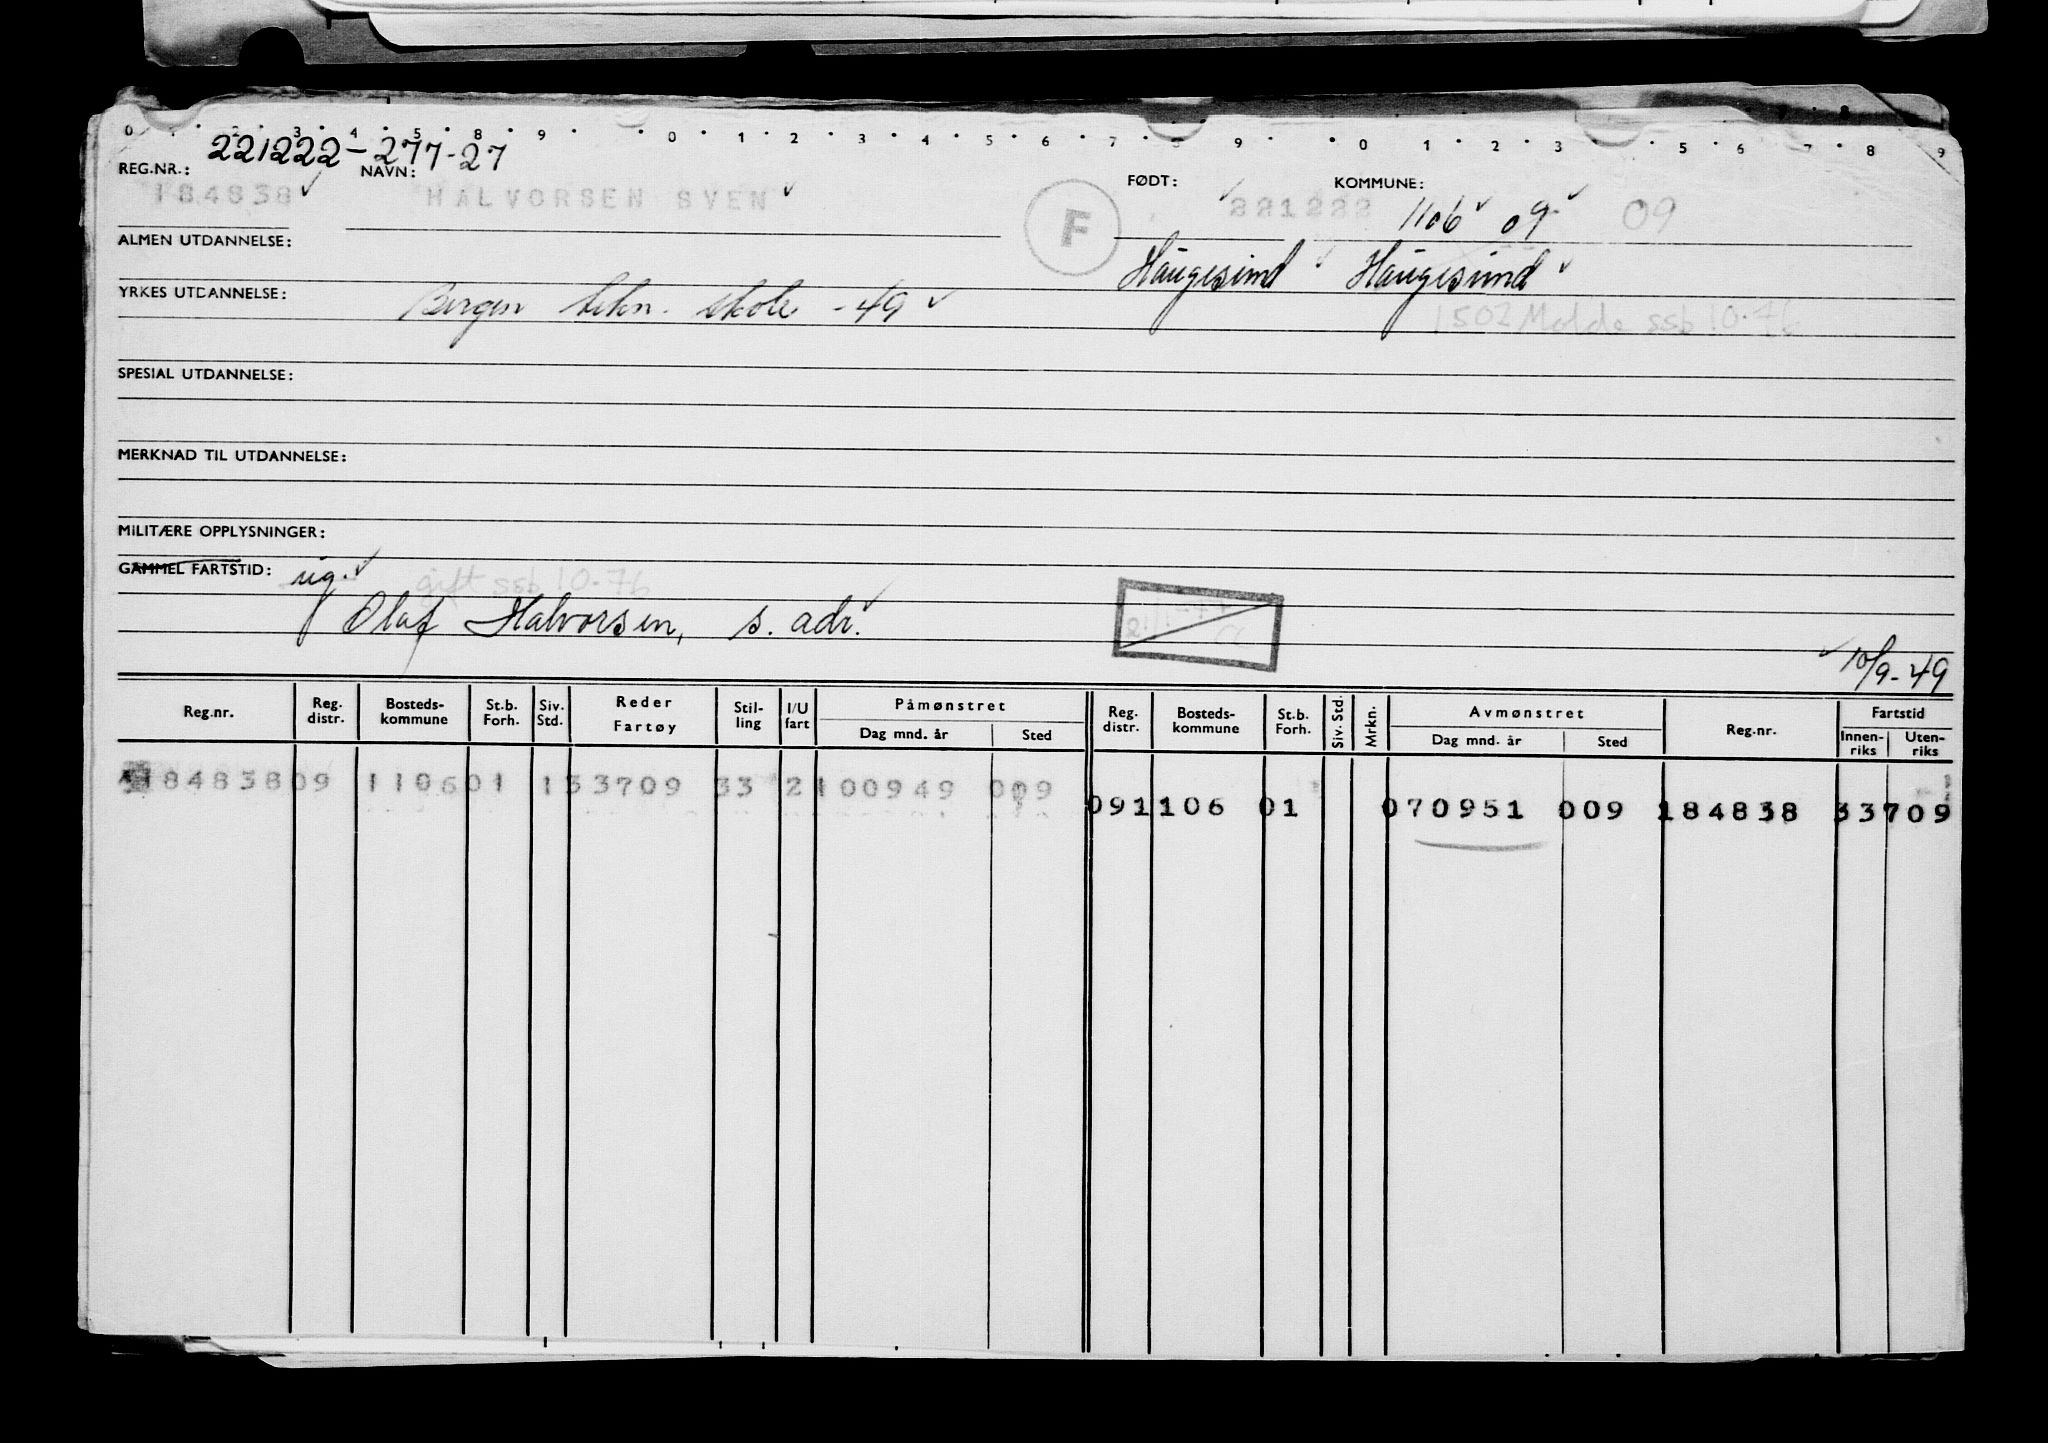 0 1 2 3 4 5 8 9 0 1 2 3 4 5 6 7 8 9 0 1 2 3 5 6 7 8 9
221222-277-27
REG.NR.: NAVN: FØDT: KOMMUNE:
184838 HALVORSEN SVEN F 221222 1106 09 09
ALMEN UTDANNELSE: Haugesund Haugesund
YRKES UTDANNELSE: Bergen tekn. skole -49 1502 Molde ssb 10-76
SPESIAL UTDANNELSE:
MERKNAD TIL UTDANNELSE:
MILITÆRE OPPLYSNINGER:
GAMMEL FARTSTID: ug. gift ssb 10-76
Olaf Halvorsen, s. adr.
10/9-49
Reg.nr. Reg. distr. Bosteds-kommune St.b. Forh. Siv. Std. Reder Fartøy Stil-ling I/U fart Påmønstret Reg. distr. Bosteds-kommune St.b. Forh. Siv. Std. Mrkn. Avmønstret Reg.nr. Fartstid
Dag mnd. år Sted Dag mnd. år Sted Innen-riks Uten-riks
18483809 110601 133709 33 2100949 009
091106 01 070951 009 184838 33709